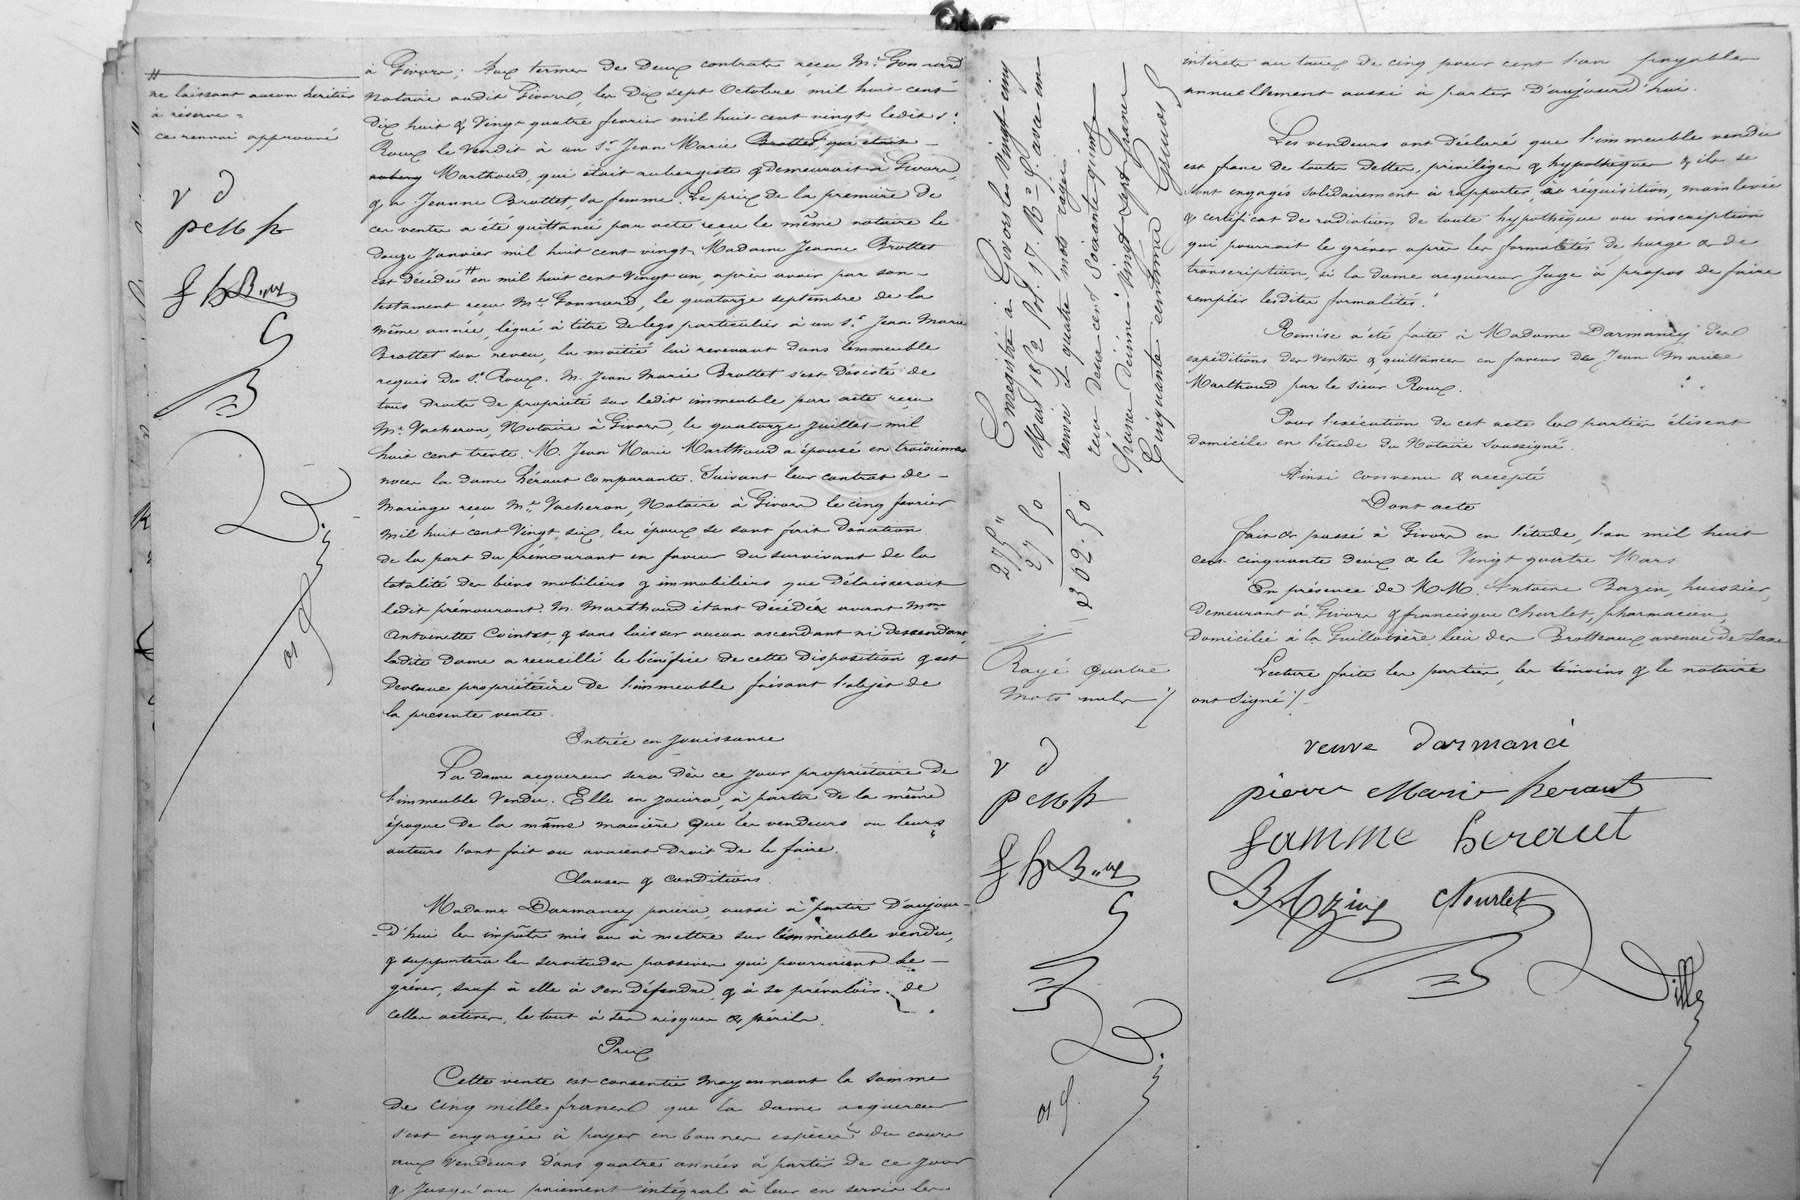 ne laissant aucun héritier
à réserve =
ce renvoi approuvé
v d
p M h
f h
à Givors; Aux termes de Deux contrats reçu Me Gonnard
Notaire audit Givors, les Dix sept Octobre mil huit cent
Dix huit & Vingt quatre février mil huit cent vingt, ledit sr
Roux le Vendit à un Sr Jean Marie Brottet, qui était
auberg Marthoud, qui était aubergiste & demeurait à Givors,
& a Jeanne Brottet, sa femme. Le prix de la première de
ces ventes a été quittancé par acte reçu le même notaire le
douze Janvier mil huit cent vingt. Madame Jeanne Brottet
est décédée # en mil huit cent Vingt un, après avoir par son
testament reçu Me Gonnard, le quatorze septembre de la
même année, légué à titre de legs particulier à un Sr Jean Marie
Brottet son neveu, la moitié lui revenant dans l'immeuble
acquis du Sr Roux. M. Jean Marie Brottet s'est désisté de
tous droits de propriété sur ledit immeuble par acte reçu
Me Vacheron, Notaire à Givors, le quatorze Juillet mil
huit cent trente. M. Jean Marie Marthoud a épousé en troisièmes
noces la dame Héraut comparante. Suivant leur contrat de
Mariage reçu Me Vacheron, Notaire à Givors le cinq février
Mil huit cent Vingt six, les époux se sont fait donation
de la part du prémourant en faveur du survivant de la
totalité des biens mobiliers & immobiliers que Délaisserait
ledit prémourant. M. Marthoud étant décédé avant Mme
Antoinette Cointet, & sans laisser aucun ascendant ni descendant,
ladite dame a recueilli le bénéfice de cette disposition & est
devenue propriétaire de l'immeuble faisant l'objet de
la présente vente.
Entrée en Jouissance
La dame acquéreur sera dès ce jour propriétaire de
l'immeuble Vendu. Elle en jouira, à partir de la même
époque de la même manière que les vendeurs ou leurs
auteurs l'ont fait ou avaient Droit de le faire.
Clauses & conditions.
Madame Darmancy paiera, aussi à partir D'aujour-
-D'hui les impôts mis ou à mettre sur l'immeuble vendu,
& supportera les servitudes passives qui pourraient le
gréver, sauf à elle à s'en défendre, & à se prévaloir de
celles actives, le tout à ses risques & périls.
Prix
Cette vente est consentie moyennant la somme
de cinq mille francs que la dame acquéreur
s'est engagée à payer en bonnes espèces du cours
aux Vendeurs dans quatre années à partir de ce jour
& jusqu'au paiement intégral à leur en servir les
Enregistré à Givors les Vingt cinq
Mars 1852 fol. 17. Ro Cases une
renvoi et quatre mots rayés.
reçu deux cent soixante quinze
francs décime Vingt sept francs
Cinquante centimes
275 "
27 50
302.50
Rayé quatre
mots nuls ./.
v d
p M h
f h
intérêts au taux de cinq pour cent l'an payables
annuellement aussi à partir D'aujourd'hui.
Les vendeurs ont déclaré que l'immeuble vendu
est franc de toutes dettes, privilèges & hypothèques & ils se
sont engagés solidairement à rapporter, à réquisition, mainlevée
& certificat de radiation de toute hypothèque ou inscription
qui pourrait le gréver après les formalités de purge & de
transcription, si la dame acquéreur Juge à propos de faire
remplir lesdites formalités.
Remise a été faite à Madame Darmancy des
expéditions des ventes & quittances en faveur des Jean Marie
Marthoud par le sieur Roux.
Pour l'exécution de cet acte les parties élisent
domicile en l'étude du Notaire soussigné.
Ainsi convenu & accepté
Dont acte
fait & passé à Givors en l'étude, l'an mil huit
cent cinquante deux & le Vingt quatre Mars
En présence de MM. Antoine Bazin, huissier,
Demeurant à Givors & francisque Churlet, pharmacien,
Domicilié à la Guillotière lieu des Brotteaux avenue de Saxe
Lecture faite les parties, les témoins & le notaire
ont signé ./.
veuve Darmanci
pierre Marie heraut
famme heraut
BAzin Churlet
Dille